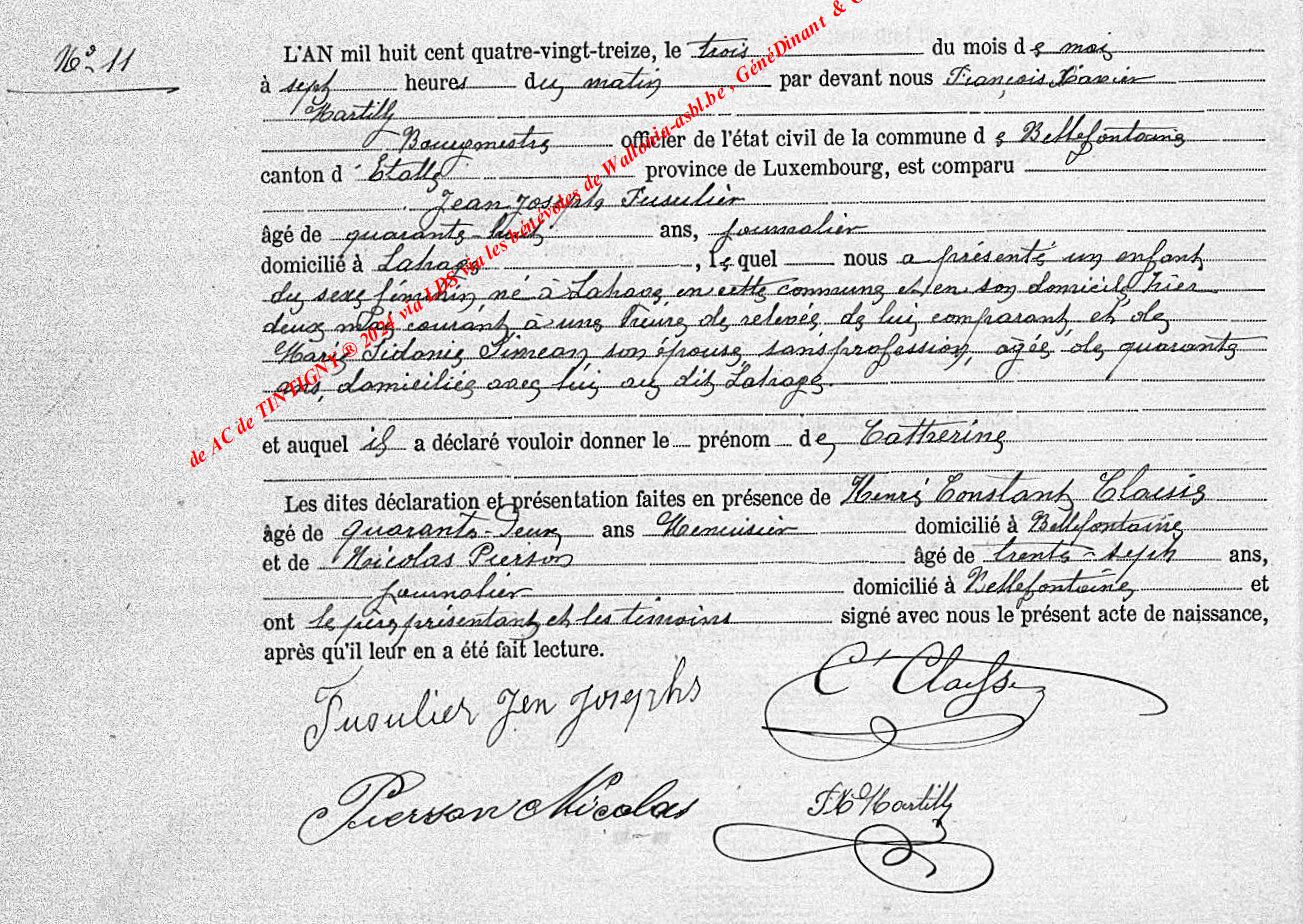 Nº 11
L'AN mil huit cent quatre-vingt-treize, le trois du mois de mai
à sept heures du matin par devant nous François Xavier
Martilly
Bourgmestre officier de l'état civil de la commune de Bellefontaine
canton d'Etalle province de Luxembourg, est comparu
Jean Joseph Fusulier
âgé de quarante-huit ans, journalier
domicilié à Lahage, lequel nous a présenté un enfant
du sexe féminin né à Lahage en cette commune et en son domicile hier
deux mai courant à une heure de relevée, de lui comparant et de
Marie Sidonie Simeon son épouse, sans profession, agée de quarante
ans, domiciliée avec lui au dit Lahage.
et auquel il a déclaré vouloir donner le prénom de Catherine
Les dites déclaration et présentation faites en présence de Henri Constant Claisse
âgé de quarante-deux ans Menuisier domicilié à Bellefontaine
et de Nicolas Pierson âgé de trente-sept ans,
journalier domicilié à Bellefontaine et
ont le père présentant et les témoins signé avec nous le présent acte de naissance,
après qu'il leur en a été fait lecture.
Fusulier Jen Josephs
Ct Claisse
Pierson Nicolas
FX Martilly
de AC de TINTIGNY ® 2024 via LDS via les bénévotes de Wallonia-asbl.be, GénéDinant &